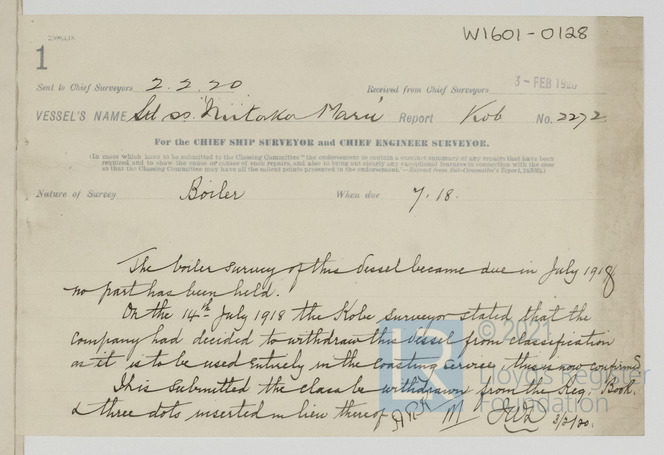 W1601-0128
1
Sent to Chief Surveyors 2.2.20 Received from Chief Surveyors 3-FEB 1920
VESSEL'S NAME ss. "Niitaka Maru" Report Kob No. 2272
For the CHIEF SHIP SURVEYOR and CHIEF ENGINEER SURVEYOR.
(In cases which have to be submitted to the Classing Committee "the endorsement to contain a succinct summary of any repairs that have been
required and to show the cause or causes of such repairs, and also to bring out clearly any exceptional features in connection with the case
so that the Classing Committee may have all the salient points presented in the endorsement."
Nature of Survey Boiler When due 7.18.
The boiler survey of this vessel became due in July 1918
no part has been held.
On the 14th July 1918 the Kobe surveyor stated that the
Company had decided to withdraw this vessel from classification
as it is to be used entirely in the coasting service, this is now confirmed.
It is submitted the class be withdrawn from the Reg. Book.
& three dots inserted in lieu thereof 3/2/20.
LR © 2021
Lloyd's Register
Foundation